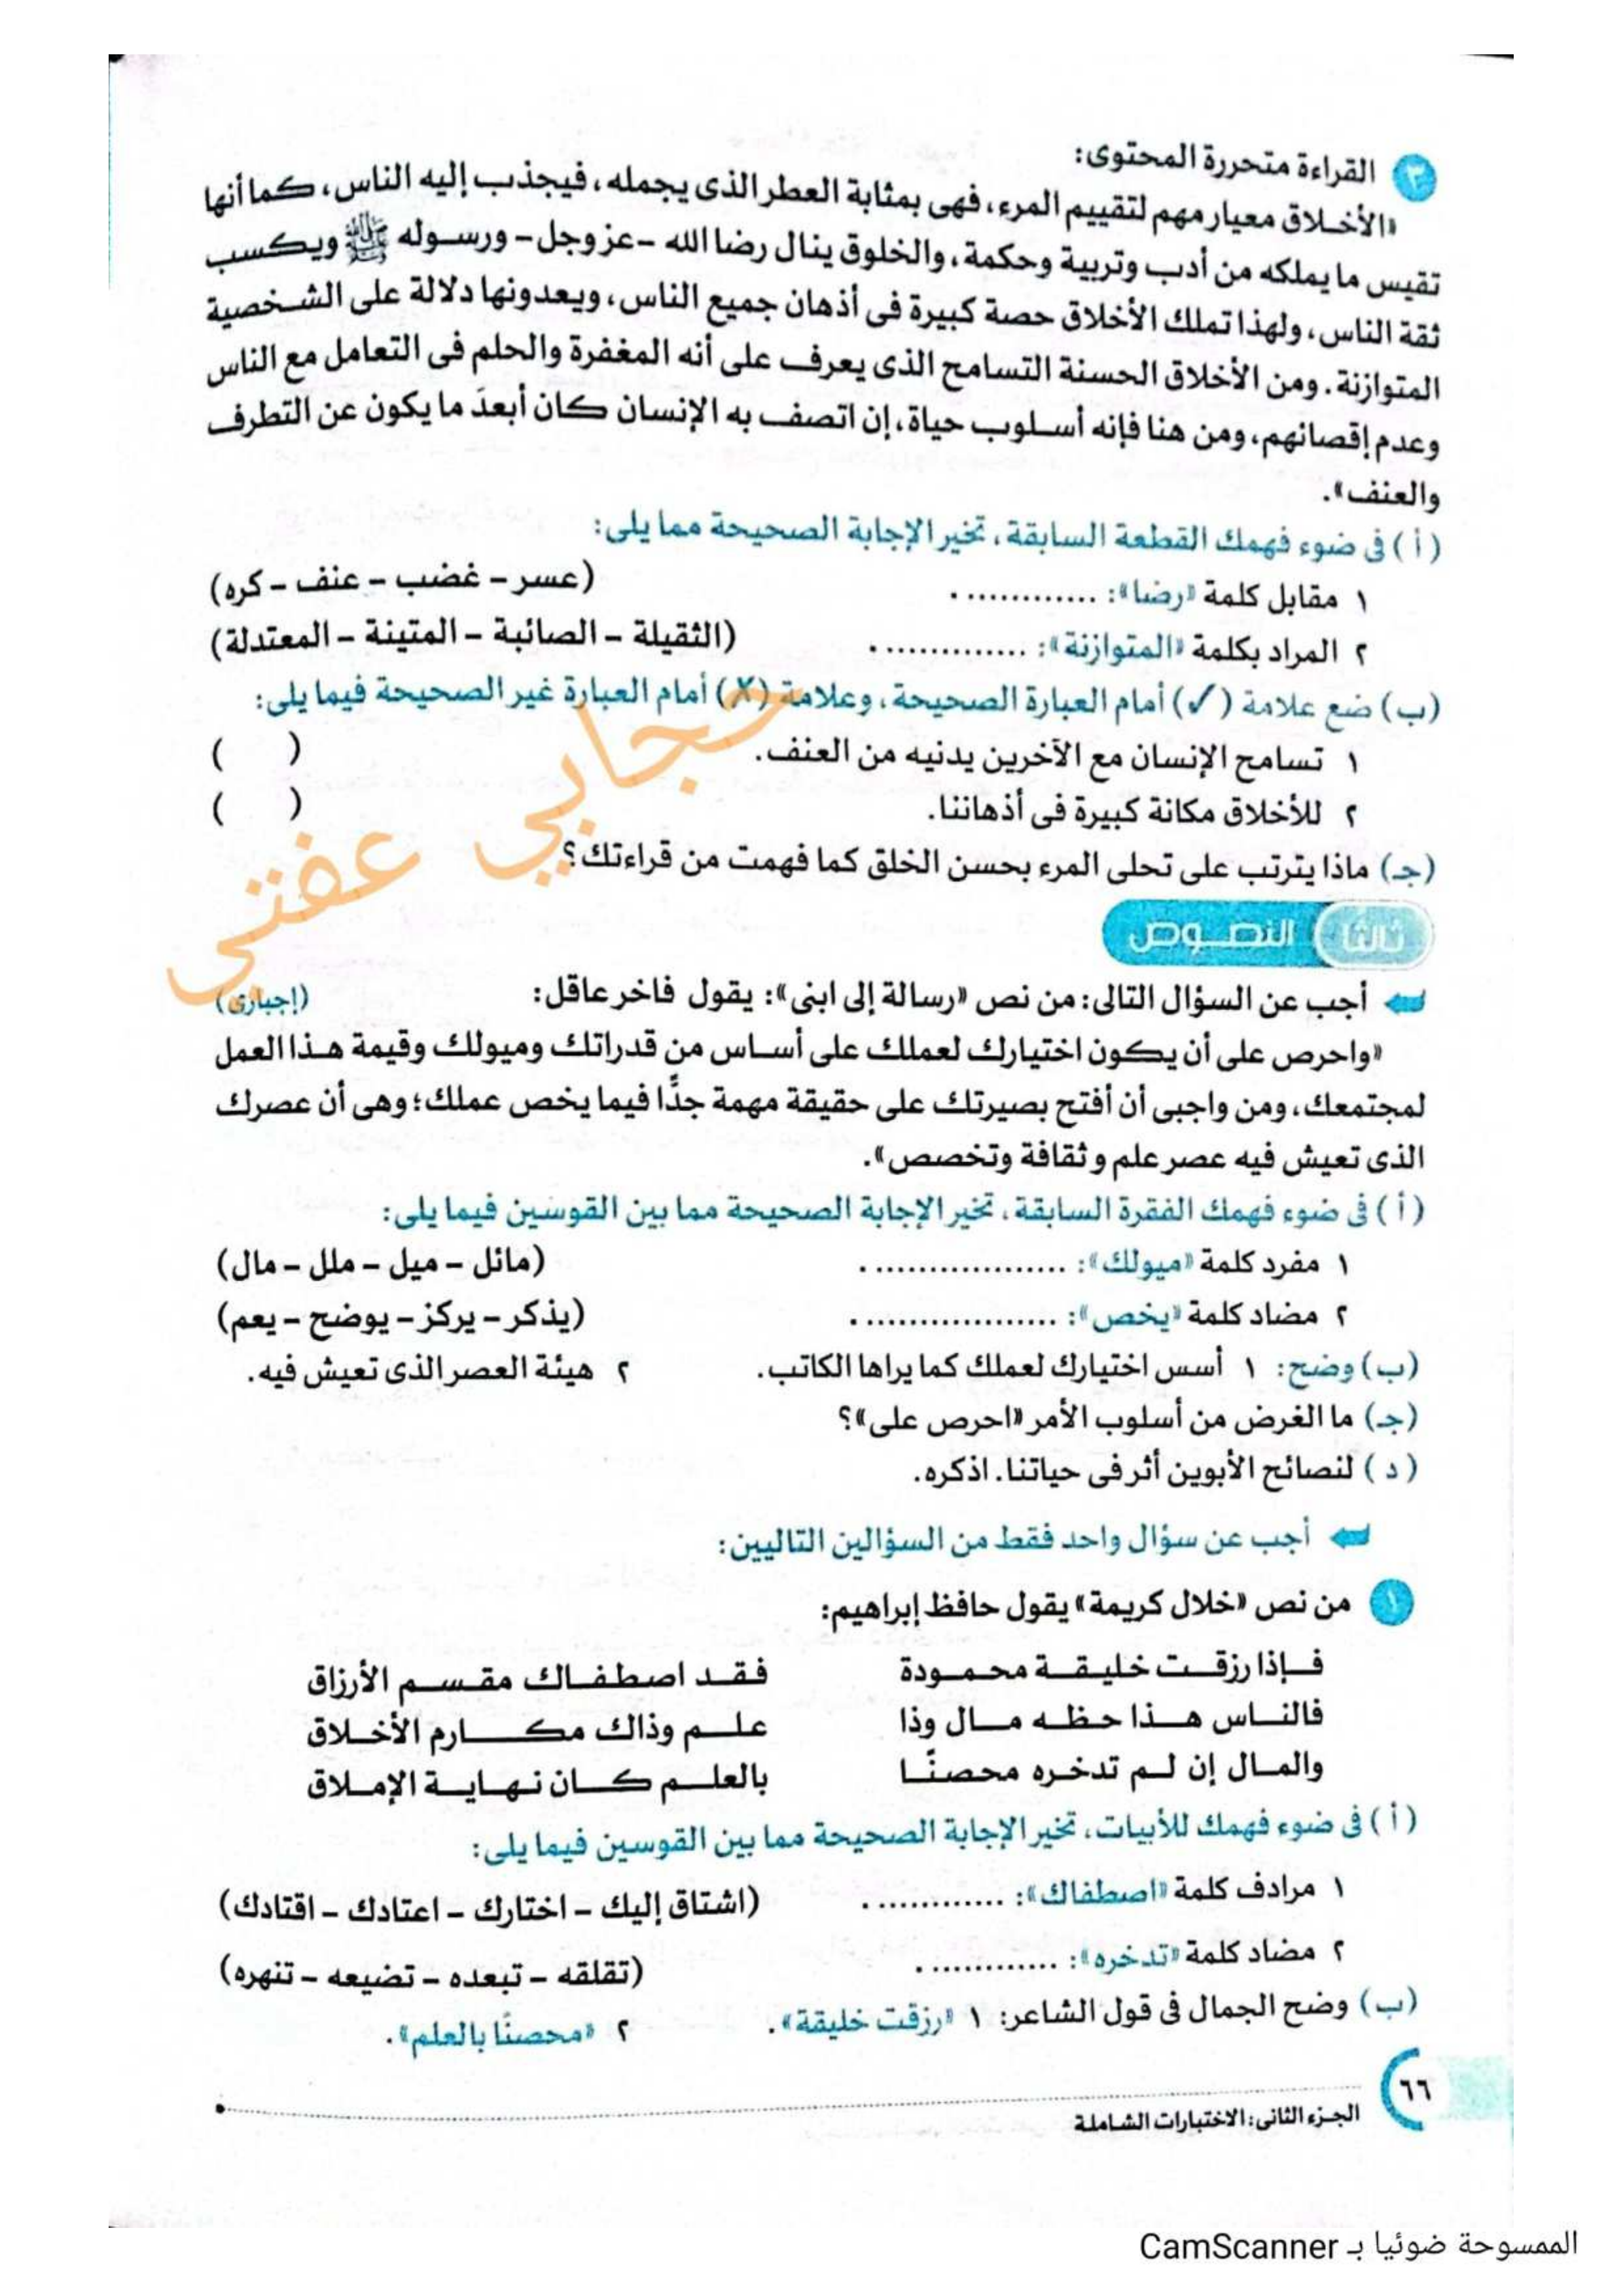 ٣ القراءة متحررة المحتوى:
«الأخلاق معيار مهم لتقييم المرء، فهى بمثابة العطر الذى يجمله، فيجذب إليه الناس، كما أنها
تقيس ما يملكه من أدب وتربية وحكمة، والخلوق ينال رضا الله -عز وجل- ورسوله ﷺ ويكسب
ثقة الناس، ولهذا تملك الأخلاق حصة كبيرة فى أذهان جميع الناس، ويعدونها دلالة على الشخصية
المتوازنة. ومن الأخلاق الحسنة التسامح الذى يعرف على أنه المغفرة والحلم فى التعامل مع الناس
وعدم إقصائهم، ومن هنا فإنه أسلوب حياة، إن اتصف به الإنسان كان أبعدَ ما يكون عن التطرف
والعنف».
(أ) فى ضوء فهمك القطعة السابقة، تخير الإجابة الصحيحة مما يلى:
١ مقابل كلمة «رضا»: ............. (عسر – غضب – عنف – كره)
٢ المراد بكلمة «المتوازنة»: .............. (الثقيلة – الصائبة – المتينة – المعتدلة)
(ب) ضع علامة (✓) أمام العبارة الصحيحة، وعلامة (✗) أمام العبارة غير الصحيحة فيما يلى:
١ تسامح الإنسان مع الآخرين يدنيه من العنف. ( )
٢ للأخلاق مكانة كبيرة فى أذهاننا. ( )
(جـ) ماذا يترتب على تحلى المرء بحسن الخلق كما فهمت من قراءتك؟
حجابي عفتي
ثالثا النصوص
أجب عن السؤال التالى: من نص «رسالة إلى ابنى»: يقول فاخر عاقل: (إجبارى)
«واحرص على أن يكون اختيارك لعملك على أساس من قدراتك وميولك وقيمة هذا العمل
لمجتمعك، ومن واجبى أن أفتح بصيرتك على حقيقة مهمة جدًّا فيما يخص عملك؛ وهى أن عصرك
الذى تعيش فيه عصر علم وثقافة وتخصص».
(أ) فى ضوء فهمك الفقرة السابقة، تخير الإجابة الصحيحة مما بين القوسين فيما يلى:
١ مفرد كلمة «ميولك»: .................. (مائل – ميل – ملل – مال)
٢ مضاد كلمة «يخص»: .................. (يذكر – يركز – يوضح – يعم)
(ب) وضح: ١ أسس اختيارك لعملك كما يراها الكاتب. ٢ هيئة العصر الذى تعيش فيه.
(جـ) ما الغرض من أسلوب الأمر «احرص على»؟
(د) لنصائح الأبوين أثر فى حياتنا. اذكره.
أجب عن سؤال واحد فقط من السؤالين التاليين:
١ من نص «خلال كريمة» يقول حافظ إبراهيم:
فإذا رزقت خليقة محمودة فقد اصطفاك مقسم الأرزاق
فالناس هذا حظه مال وذا علم وذاك مكارم الأخلاق
والمال إن لم تدخره محصنًا بالعلم كان نهاية الإملاق
(أ) فى ضوء فهمك للأبيات، تخير الإجابة الصحيحة مما بين القوسين فيما يلى:
١ مرادف كلمة «اصطفاك»: ............. (اشتاق إليك – اختارك – اعتادك – اقتادك)
٢ مضاد كلمة «تدخره»: ............. (تقلقه – تبعده – تضيعه – تنهره)
(ب) وضح الجمال فى قول الشاعر: ١ «رزقت خليقة». ٢ «محصنًا بالعلم».
٦٦
الجزء الثانى: الاختبارات الشاملة
الممسوحة ضوئيا بـ CamScanner